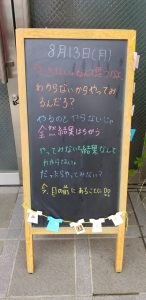 8月13日(月)
わからないからやってみ
るんだろ?
やるのとやらないじゃ
全然結果はちがう
やってみない結果なんて
わからない。
だったらやってみない?
今、目の前にあることにDo